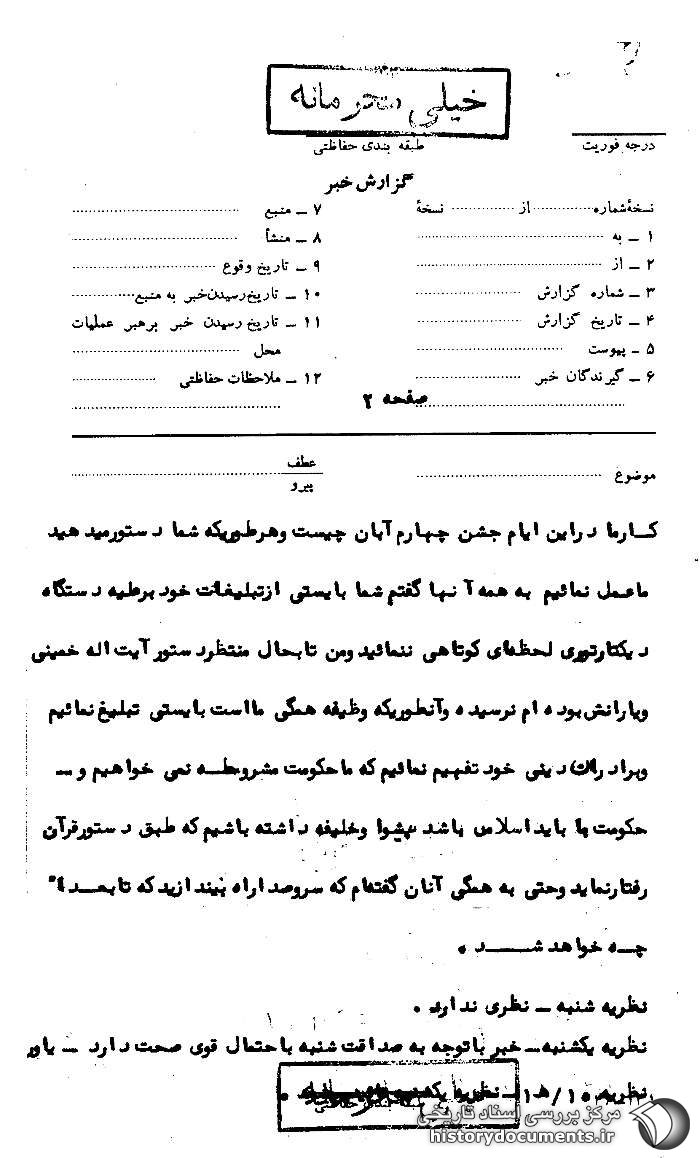 خیلی محرمانه
درجه فوریت
طبقه بندی حفاظتی
گزارش خبر
نسخهٔ شماره .............. از .............. نسخهٔ
۱ ـ به
۲ ـ از
۳ ـ شماره گزارش
۴ ـ تاریخ گزارش
۵ ـ پیوست
۶ ـ گیرندگان خبر
۷ ـ منبع
۸ ـ منشأ
۹ ـ تاریخ وقوع
۱۰ ـ تاریخ رسیدن خبر به منبع
۱۱ ـ تاریخ رسیدن خبر برهبر عملیات
محل
۱۲ ـ ملاحظات حفاظتی
صفحه ۲
موضوع
عطف
پیرو
کارما دراین ایام جشن چهارم آبان چیست وهرطوریکه شما دستورمیدهید
ماعمل نمائیم به همه آنها گفتم شما بایستی ازتبلیغات خود برعلیه دستگاه
دیکتاتوری لحظه‌ای کوتاهی ننمائید ومن تابحال منتظردستور آیت اله خمینی
ویارانش بوده ام نرسیده وآنطوریکه وظیفه همگی مااست بایستی تبلیغ نمائیم
وبرادران دینی خود تفهیم نمائیم که ماحکومت مشروطه نمی خواهیم و ـ
حکومت ما باید اسلامی باشد پیشوا وخلیفه داشته باشیم که طبق دستورقرآن
رفتارنماید وحتی به همگی آنان گفته‌ام که سروصدا راه بیندازید که تابعدا"
چه خواهد شد .
نظریه شنبه ـ نظری ندارد .
نظریه یکشنبه ـ خبر باتوجه به صداقت شنبه باحتمال قوی صحت دارد ـ یاور
نظریه ۱۰/ه‍ ۱ـ نظریه یکشنبه
طبقه بندی حفاظتی
مرکز بررسی اسناد تاریخی
historydocuments.ir